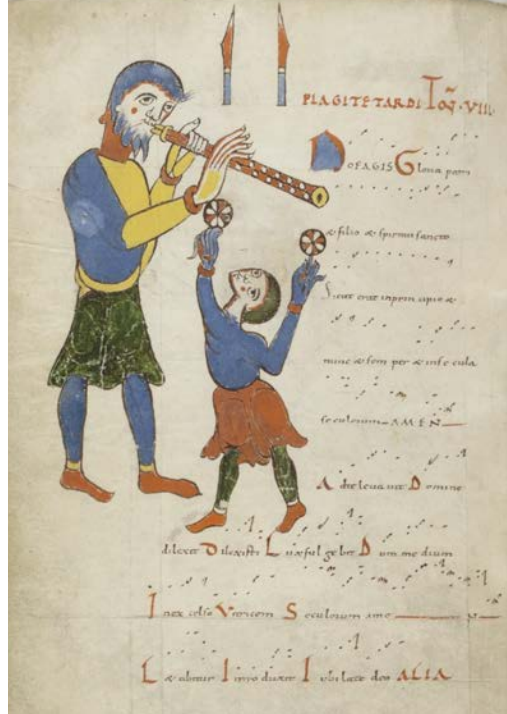 PLAGITETARDI Toñ. VIII.
NOEAGIS Gloria patri
& filio & spiritui sancto
Sicut erat inprincipio &
nunc & sem per & inse cula
seculorum AMEN
Ad te levavit Domine
dilexit Dilexisti Lux ful gebit Dum me dium
Seculorum ame N
Intro duxit Iubilate deo ALIA